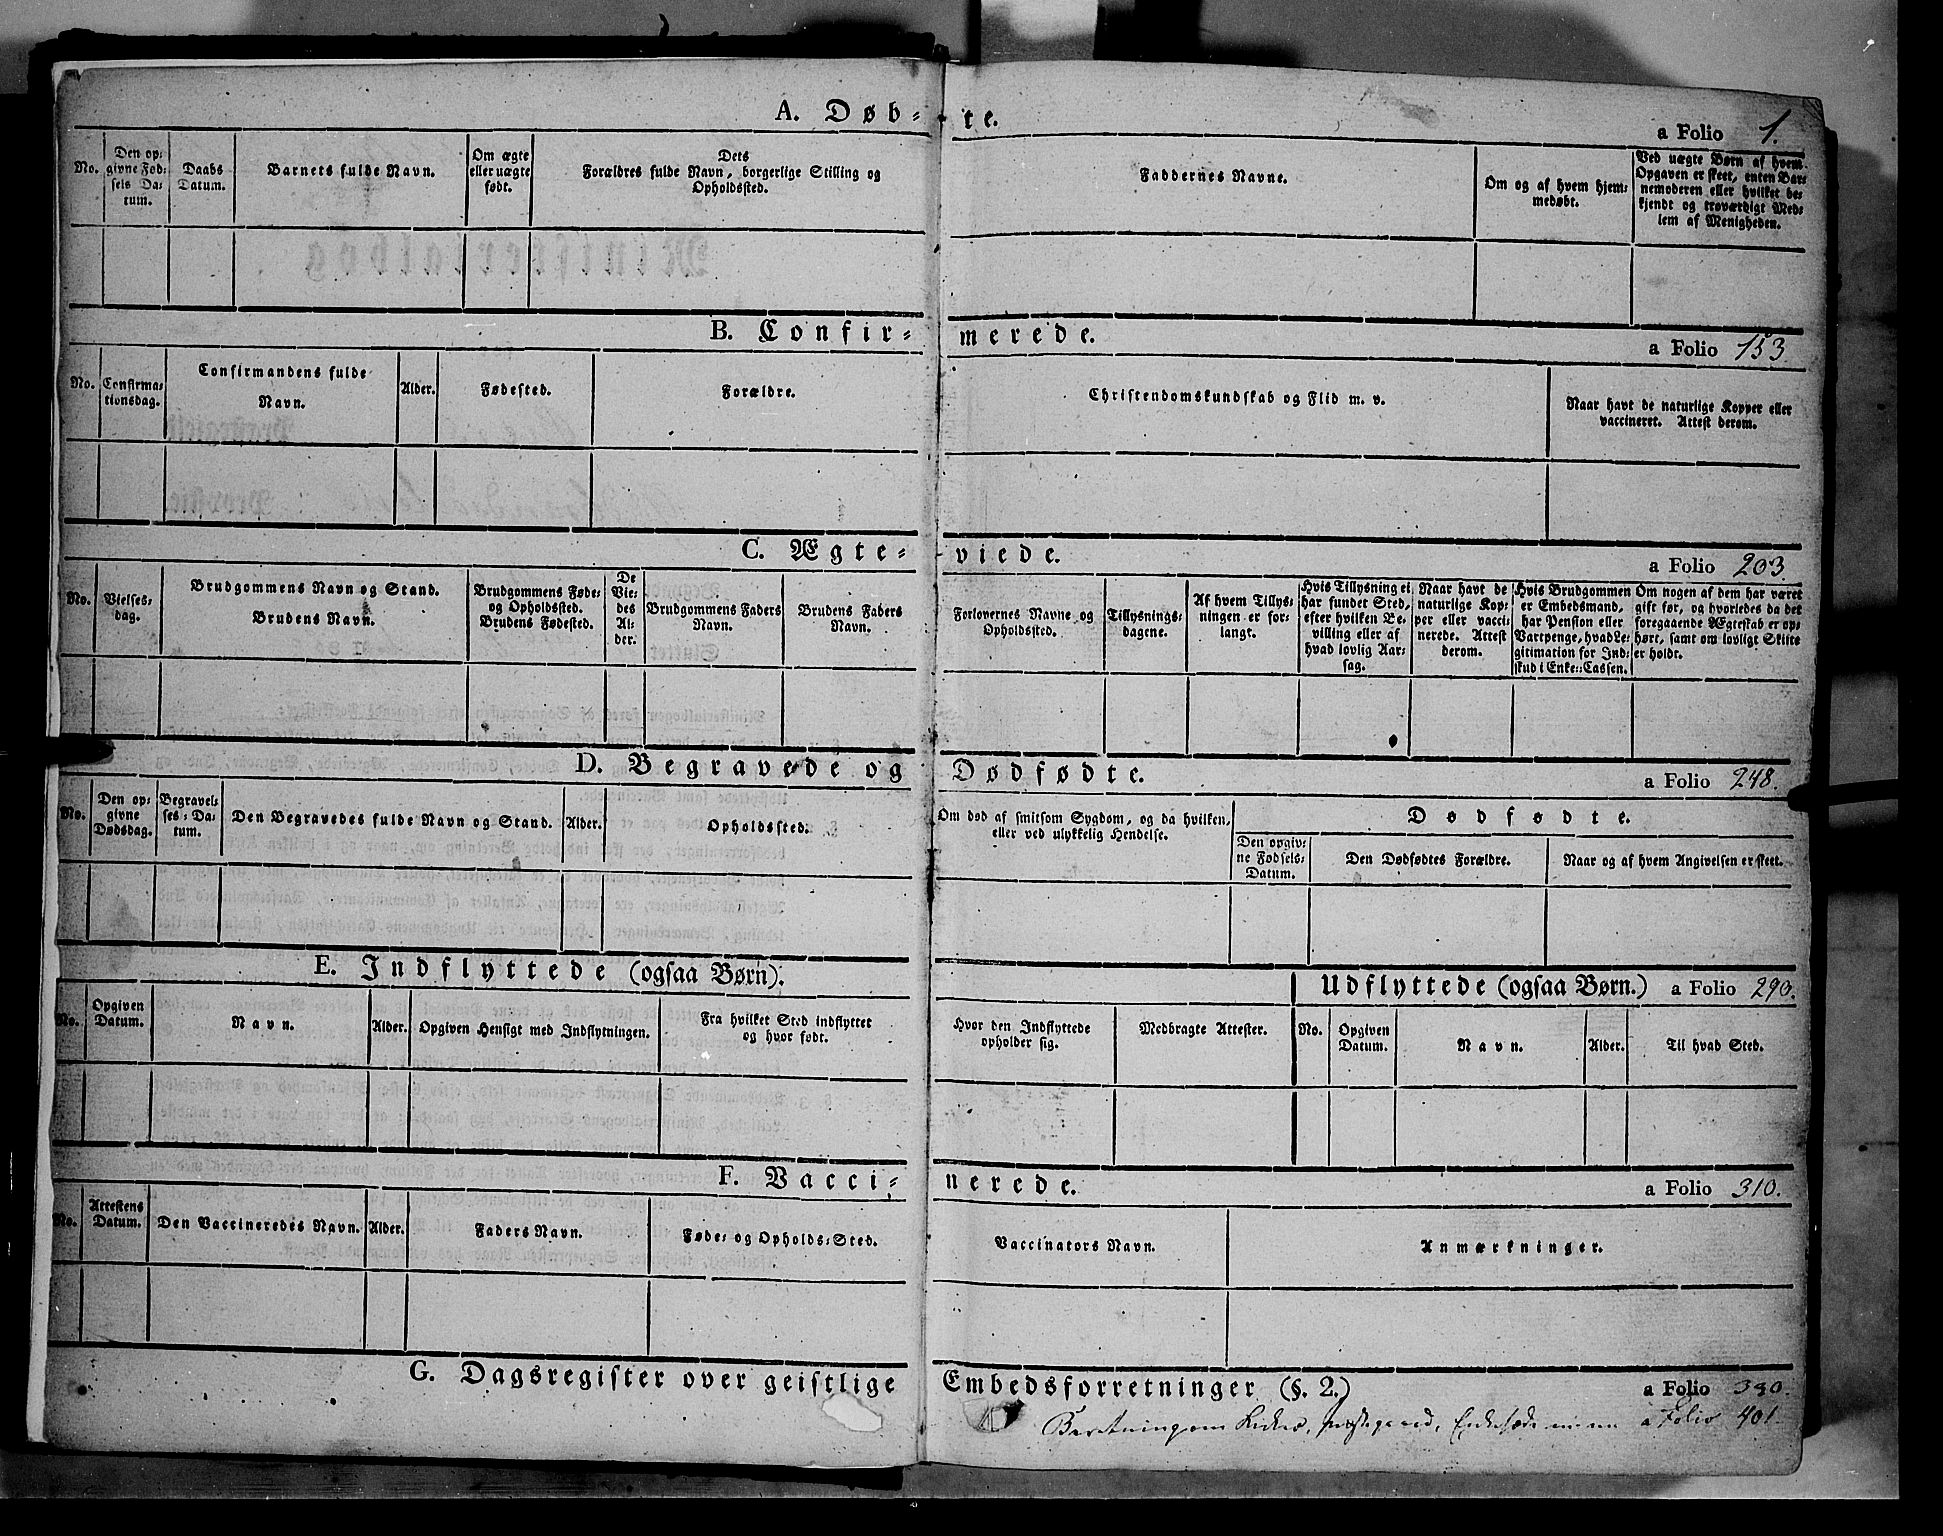 A. Døb-te. a Folio 1.
No. Den opgivne Fødsels Datum. Daabs Datum. Barnets fulde Navn. Om ægte eller uægte født. Dets Forældres fulde Navn, borgerlige Stilling og Opholdssted. Faddernes Navne. Om og af hvem hjemmedøbt. Ved uægte Børn af hvem Opgaven er skeet, enten Barnemoderen eller hvilket bekjendt og troværdigt Medlem af Menigheden.
B. Confir-merede. a Folio 153.
No. Confirmationsdag. Confirmandens fulde Navn. Alder. Fødested. Forældre. Christendomskundskab og Flid m. v. Naar havt de naturlige Kopper eller vaccineret. Attest derom.
C. Ægte-viede. a Folio 203.
No. Vielsesdag. Brudgommens Navn og Stand. Brudens Navn. Brudgommens Føde- og Opholdssted. Brudens Fødested. De Viedes Alder. Brudgommens Faders Navn. Brudens Faders Navn. Forlovernes Navne og Opholdssted. Tillysningsdagene. Af hvem Tillysningen er forlangt. Hvis Tillysning ei har fundet Sted, efter hvilken Bevilling eller af hvad lovlig Aarsag. Naar havt de naturlige Kopper eller vaccinerede. Attest derom. Hvis Brudgommen er Embedsmand, har Pension eller Vartpenge, hvad Legitimation for Indskud i Enke-Cassen. Om nogen af dem har været gift før, og hvorledes da det foregaaende Ægteskab er ophørt, samt om lovligt Skifte er holdt.
D. Begravede og Dødfødte. a Folio 248.
No. Den opgivne Dødsdag. Begravelses-Datum. Den Begravedes fulde Navn og Stand. Alder. Opholdssted. Om død af smitsom Sygdom, og da hvilken, eller ved ulykkelig Hendelse. Dødfødte. Den opgivne Fødsels-Datum. Den Dødfødtes Forældre. Naar og af hvem Angivelsen er skeet.
E. Indflyttede (ogsaa Børn). Udflyttede (ogsaa Børn.) a Folio 290.
No. Opgiven Datum. Navn. Alder. Opgiven Hensigt med Indflytningen. Fra hvilket Sted indflyttet og hvor født. Hvor den Indflyttede opholder sig. Medbragte Attester. No. Opgiven Datum. Navn. Alder. Til hvad Sted.
F. Vacci-nerede. a Folio 310.
No. Attestens Datum. Den Vaccineredes Navn. Alder. Faders Navn. Føde- og Opholds-Sted. Vaccinators Navn. Anmærkninger.
G. Dagsregister over geistlige Embedsforretninger (§. 2.) a Folio 380.
Beretning om Kirker, Præstegaard, Enkesæde m: m: a Folio 401.